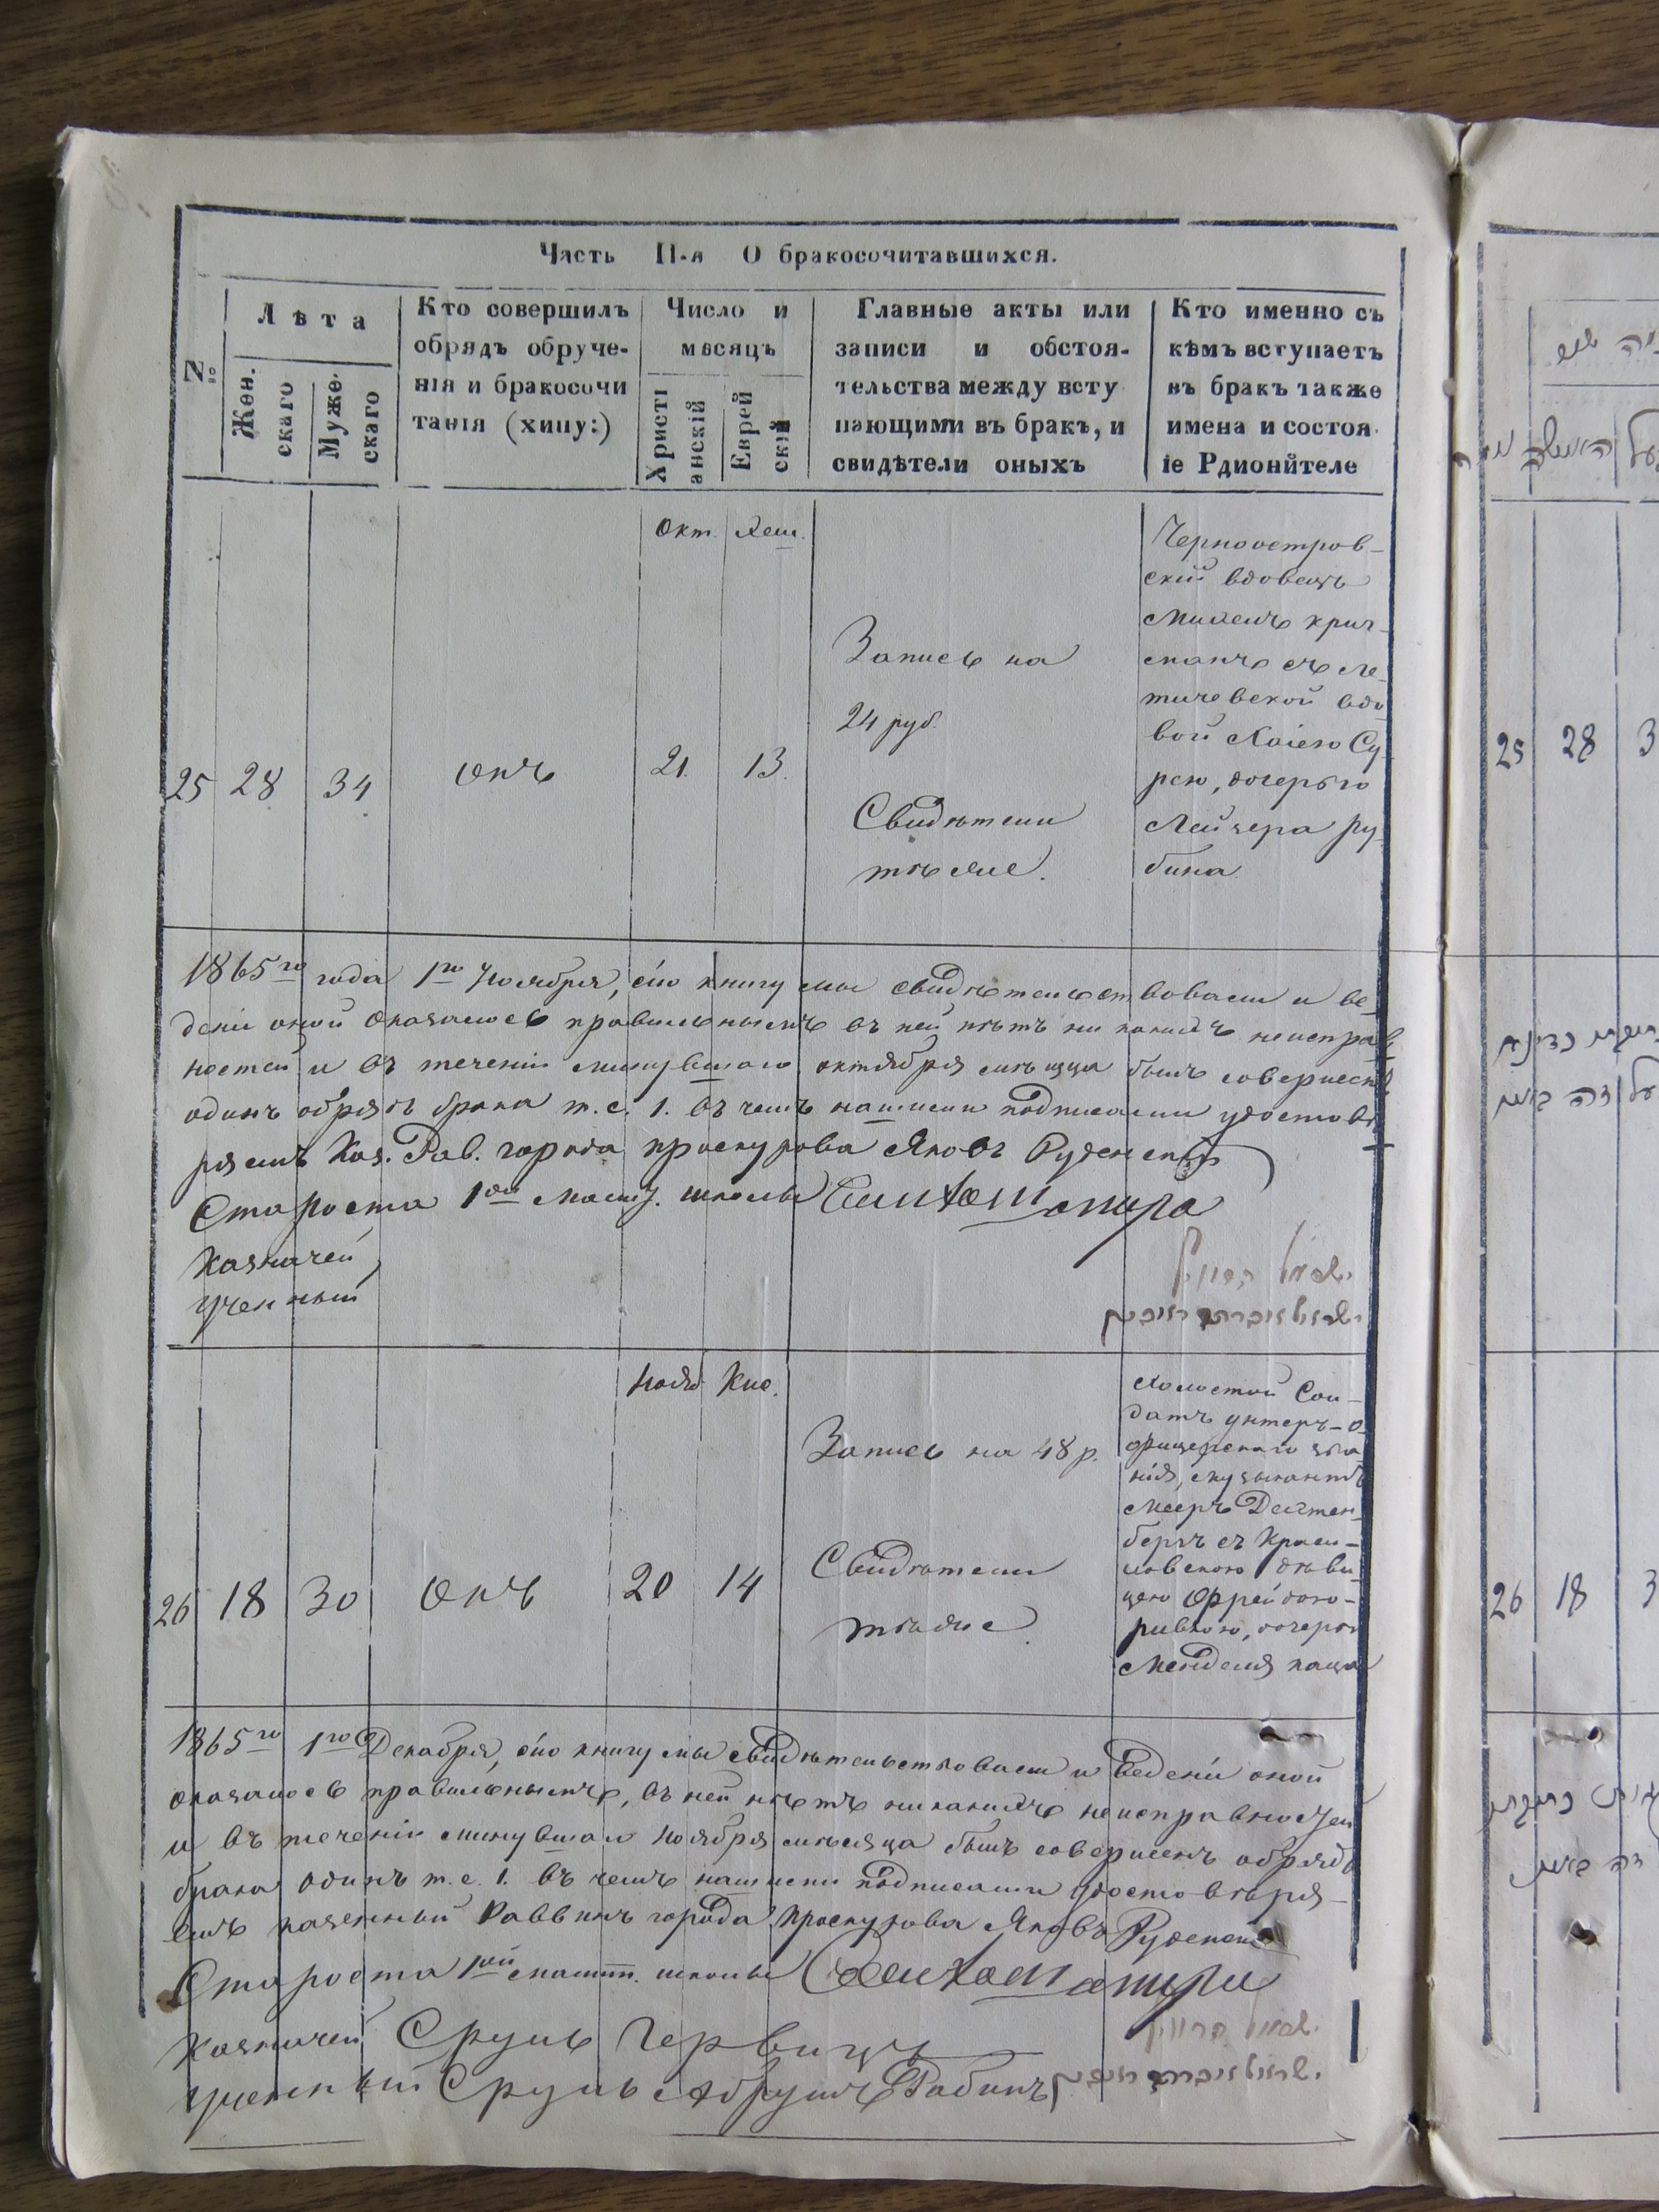 Часть II-я О бракосочитавшихся.
№
Лѣта
Жен.
скаго
Муже
скаго
Кто совершилъ
обрядъ обруче-
нія и бракосочи
танія (хипу:)
Число и
мѣсяцъ
Христі
анскій
Еврей
скій
Главные акты или
записи и обстоя-
тельства между всту
пающими въ бракъ, и
свидѣтели оныхъ
Кто именно съ
кѣмъ вступаетъ
въ бракъ также
имена и состоя
іе Рдионйтеле
Окт. Хеш.
25 28 34 онъ 21. 13.
Запись на
24 руб.
Свидѣтели
тѣ же.
Черноостров-
скій вдовецъ
Михель Криг-
манъ съ Ле-
тичевской вдо
вой Хаіею Су
рею, дочерью
Лейзера Ру-
бина
1865го года 1го Ноября, сію книгу мы свидѣтельствовали и ве
деніи оной оказалось правильнымъ въ ней нѣтъ ни какихъ неисправ
ностей и въ теченіи минувшаго октября мѣсяца былъ совершенъ
одинъ обрядъ брака т. е. 1. въ чемъ нашими подписами удостовѣ
ряемъ Каз. Рав. города Проскурова Яковъ Руденскій
Староста 1ой школы
Казначей
Ученный
Нояб Кис.
26 18 30 Онъ 20 14
Запись на 48 р.
Свидѣтели
тѣ же
Холостой Сол-
датъ унтеръ-о
фицерскаго зва
нія, музыкантъ
Мееръ
бергъ съ Краси-
ловскою дѣви
цею Фрейдою-
Ривкою, дочерью
Менделя Каца
1865го 1го Декабря, сію книгу мы свидѣтельствовали и веденіи оной
оказалось правильнымъ, въ ней нѣтъ никакихъ неисправностей
и въ теченіи минувшаго Ноября мѣсяца былъ совершенъ обрядъ
брака одинъ т. е. 1. въ чемъ нашими подписами удостовѣря-
емъ казенный Раввинъ города Проскурова Яковъ Руденскій
Староста 1ой школы
Казначей Сруль Гервицъ
Ученный Сруль Абрумъ Рабинъ
25 28 3
26 18 3